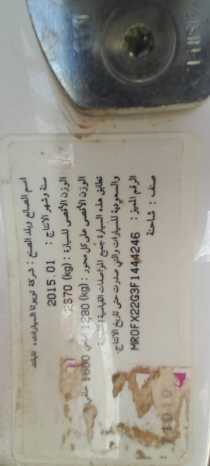 اسم الصانع وبلد الصنع : شركة تويوتا للسيارات، تايلند
سنة وشهر الانتاج : 01 2015
الوزن الأقصى للسيارة : (kg) 870
الوزن الأقصى على كل محور : (kg) 1280 1600
تطابق هذه السيارة جميع المواصفات القياسية
والسعودية للسيارات والتي صدرت حتى تاريخ الانتاج
الرقم المميز : MR0FX22G3F1444246
صنف : شاحنة